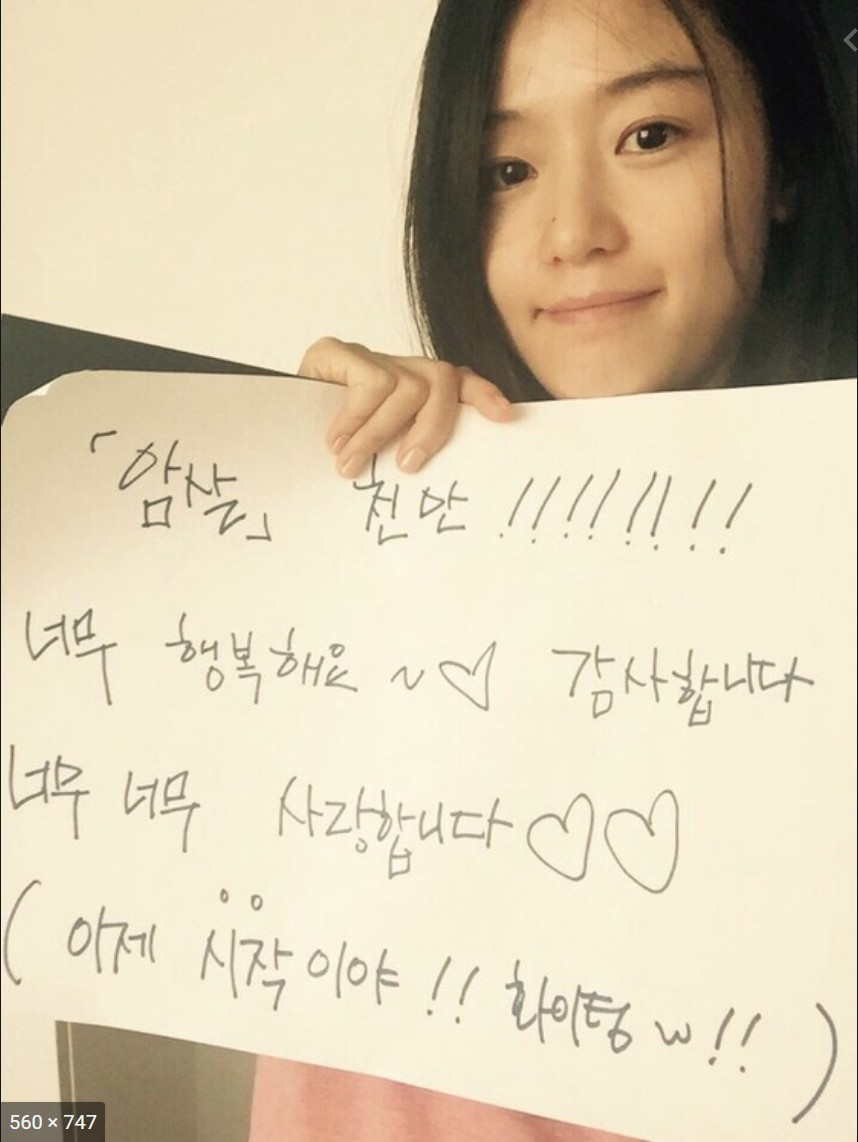 「암살」 천만 !!!!!!!!!
너무 행복해요 ~♡ 감사합니다
너무 너무 사랑합니다♡♡
( 이제 시작이야 !! 화이팅 w !! )
560 × 747